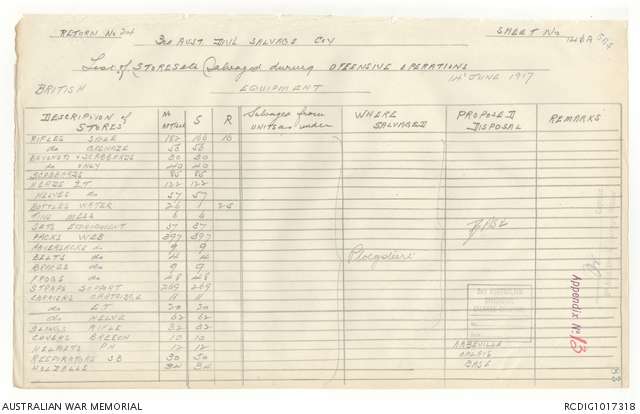 RETURN No 24 3RD AUST DIVL SALVAGE COY SHEET No
List of STORES etc Salvaged during OFFENSIVE OPERATIONS
14 JUNE 1917
BRITISH EQUIPMENT
DESCRIPTION of STORES S R Salvaged from UNITS as under WHERE SALVAGED PROPOSED DISPOSAL REMARKS
RIFLES
do GRENADE 53 53
BAYONETS & SCABBARDS 30 30
do ONLY 40 40
SCABBARDS 85 85
HEADS E.T. 122 122
HELVES do 57 57
BOTTLES WATER 26 1 25
TINS MESS 6 6
SETS EQUIPMENT 37 37
PACKS WEB 397 397
HAVERSACKS do 9 9
BELTS do
BRACES do 9 9
FROGS do 48 48
STRAPS SUPPORT 269 269
CARRIERS CARTRIDGE 11 11
do E.T. 20 20
do HELVE 62 62
SLINGS RIFLE 32 32
COVERS BREECH 10 10
HELMETS PH 12 12
RESPIRATORS SB 30 30
HOLDALLS 34 34
BASE
Ploegsteert
ABBEVILLE
CALAIS
BASE
Appendix No 13
AUSTRALIAN WAR MEMORIAL
RCDIG1017318